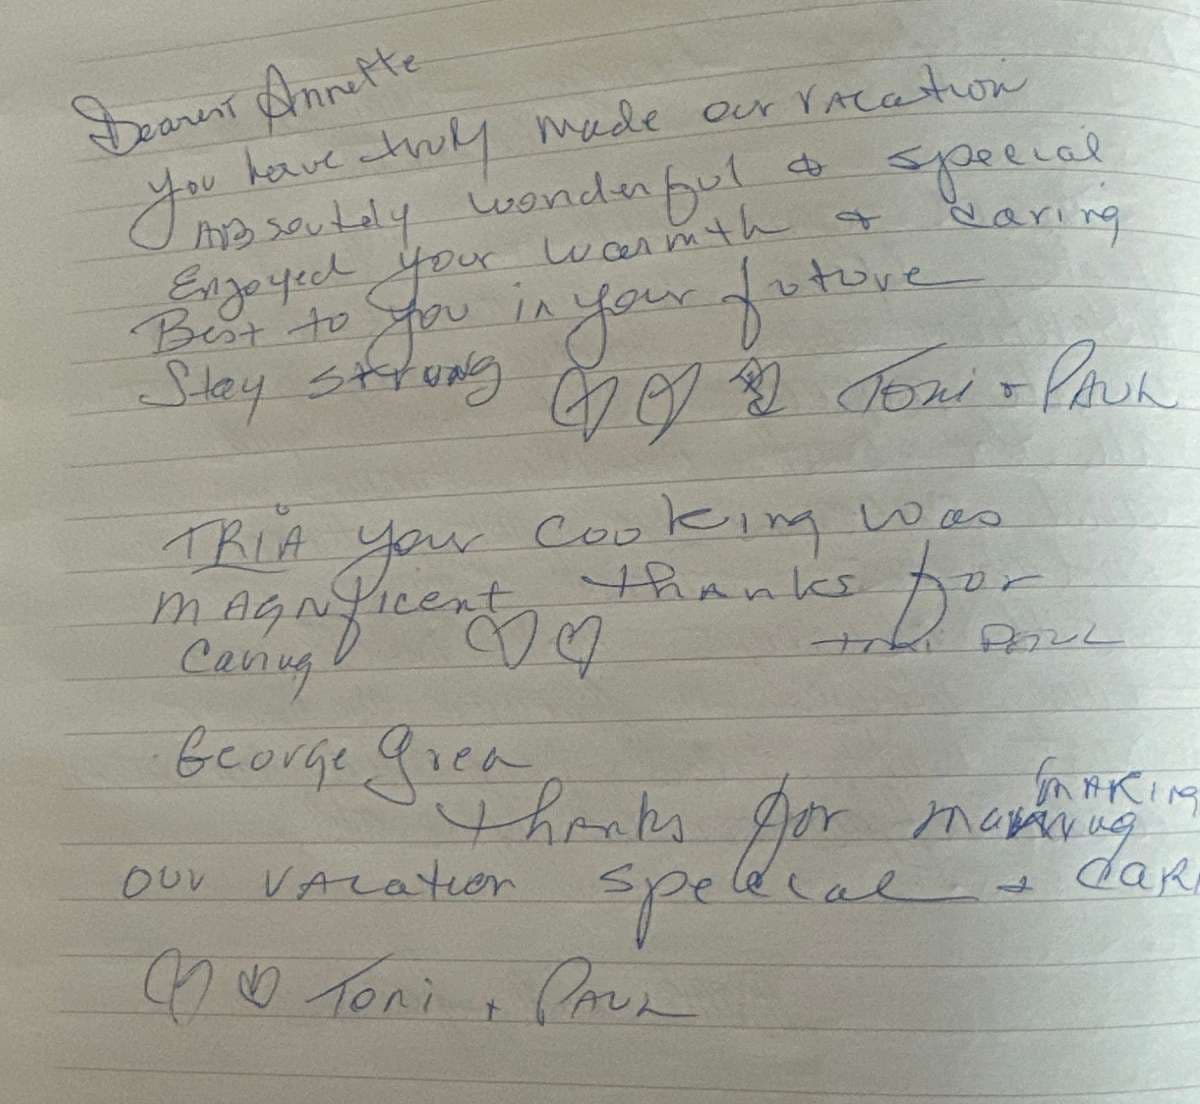 Dearest Annette
you have truly made our vacation
Absoutely wonderful & special
Enjoyed your warmth & caring
Best to you in your future
Stay strong ♡ ♡ Toni + Paul
TRIA your cooking was
magnificent thanks for
caring ♡ ♡ Toni Paul
George Grea
thanks for making
our vacation special + car
♡ ♡ Toni + Paul